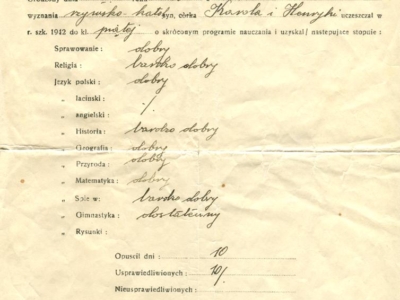 wyznania rzymsko-katol. syn, córka Karola i Henryki uczęszczał w
r. szk. 1942 do kl. piątej o skróconym programie nauczania i uzyskał / następujące stopnie :
Sprawowanie : dobry
Religia : bardzo dobry
Język polski : dobry
„ łaciński : ./.
„ angielski :
„ Historia : bardzo dobry
„ Geografia : dobry
„ Przyroda : dobry
„ Matematyka : dobry
„ Śpiew : bardzo dobry
„ Gimnastyka : dostateczny
„ Rysunki :
Opuścił dni : 10
Usprawiedliwionych : 10/.
Nieusprawiedliwionych :